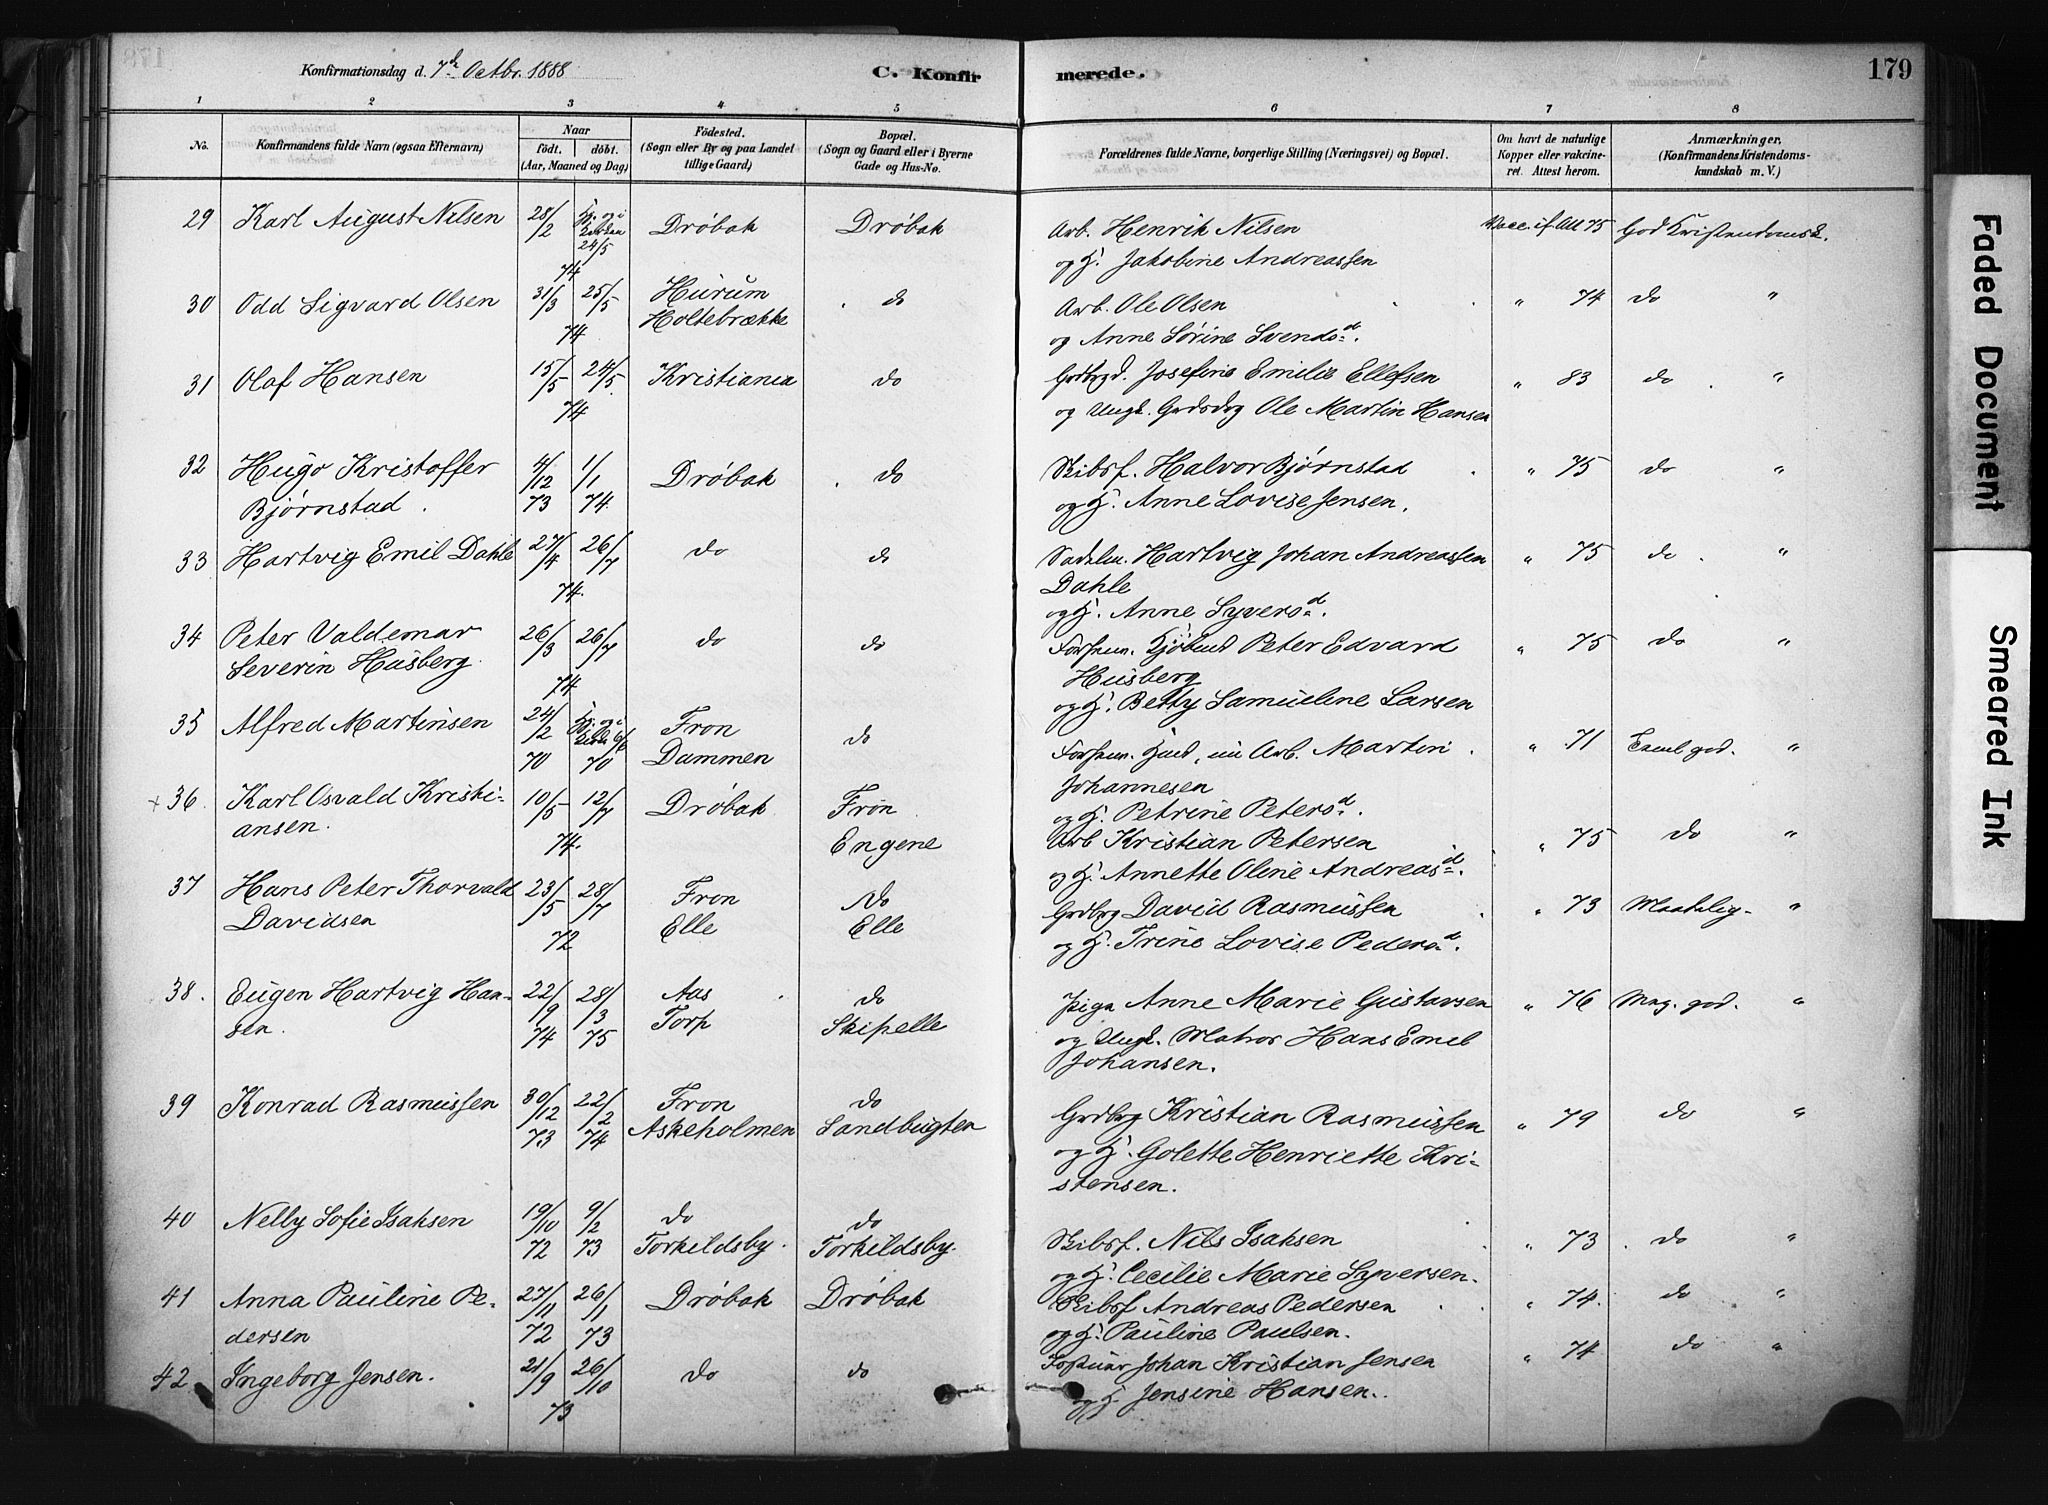 Konfirmationsdag d. 7de Octbr. 1888
C. Konfirmerede.
179
1 2 3 4 5 6 7 8
No.
Konfirmandens fulde Navn (ogsaa Efternavn)
Naar
födt. döbt.
(Aar, Maaned og Dag)
Födested.
(Sogn eller By og paa Landet
tillige Gaard)
Bopæl.
(Sogn og Gaard eller i Byerne
Gade og Hus-No.
Forældrenes fulde Navne, borgerlige Stilling (Næringsvei) og Bopæl.
Om havt de naturlige
Kopper eller vakcine-
ret. Attest herom.
Anmærkninger,
(Konfirmandens Kristendoms-
kundskab m. V.)
29 Karl August Nilsen 28/2 24/5 74 Dröbak Dröbak Arb. Henrik Nilsen Vacc. if. Att 75 God Kristendomsk.
og H. Jakobine Andreassen
30 Odd Sigvard Olsen 31/3 25/5 74 Hurum do Arb. Ole Olsen " 74 do "
Holtebrække og Anne Sørine Svendsd.
31 Olaf Hansen 15/5 24/5 74 Kristiania do Grdbrgd. Josefine Emilie Ellefsen " 83 do "
og Ungk. Ole Martin Hansen
32 Hugo Kristoffer 4/12 73 1/1 74 Dröbak do Skibsf. Halvor Bjørnstad " 75 do "
Bjørnstad. og H. Anne Lovise Jensen.
33 Hartvig Emil Dahle 27/4 26/7 74. do do Sadelm. Hartvig Johan Andreassen " 75 do "
Dahle
og H. Anne Syversd.
34 Peter Valdemar 26/3 26/7 74 do do Kjøbmd Peter Edvard " 75 do "
Severin Husberg. Husberg
og H. Betty Samueline Larsen
35 Alfred Martinsen 24/2 70 6/6 70 Fron do nu Arb. Martin " 71 god. "
Dammen Johannesen
og H. Petrine Petersd.
× 36. Karl Osvald Kristi- 10/5 12/7 74. Dröbak Fron Arb Kristian Petersen " 75 do "
ansen. Engene og H. Annette Oline Andreasd.
37 Hans Peter Thorvald 23/5 28/7 72 Fron do Grdbrg David Rasmussen " 73 Maadelig "
Davidsen Elle Elle og H. Trine Lovise Pedersd.
38. Eugen Hartvig Han- 22/9 74 28/3 75 Aas do Pige Anne Marie Gustavsen " 76 Mag. god. "
sen. Torp Skipelle og Ungk. Matros Hans Emil
Johansen.
39 Konrad Rasmussen 30/12 73 22/2 74 Fron do Grdbrg Kristian Rasmussen " 79 do "
Askeholmen Sandbugten og H. Golette Henriette Kri-
stensen.
40 Nelly Sofie Isaksen 19/10 72 9/2 73 do do Skibsf. Nils Isaksen " 73 do "
Torkildsby. Torkildsby. og H. Cecilie Marie Syversen.
41 Anna Pauline Pe- 27/11 72 26/1 73 Dröbak Dröbak Skibsf Andreas Pedersen " 74. do "
dersen og H. Pauline Paulsen.
42 Ingeborg Jensen. 21/9 26/10 73 do do Johan Kristian Jensen " 74 do "
og H. Jensine Hansen.
Faded Document
Smeared Ink